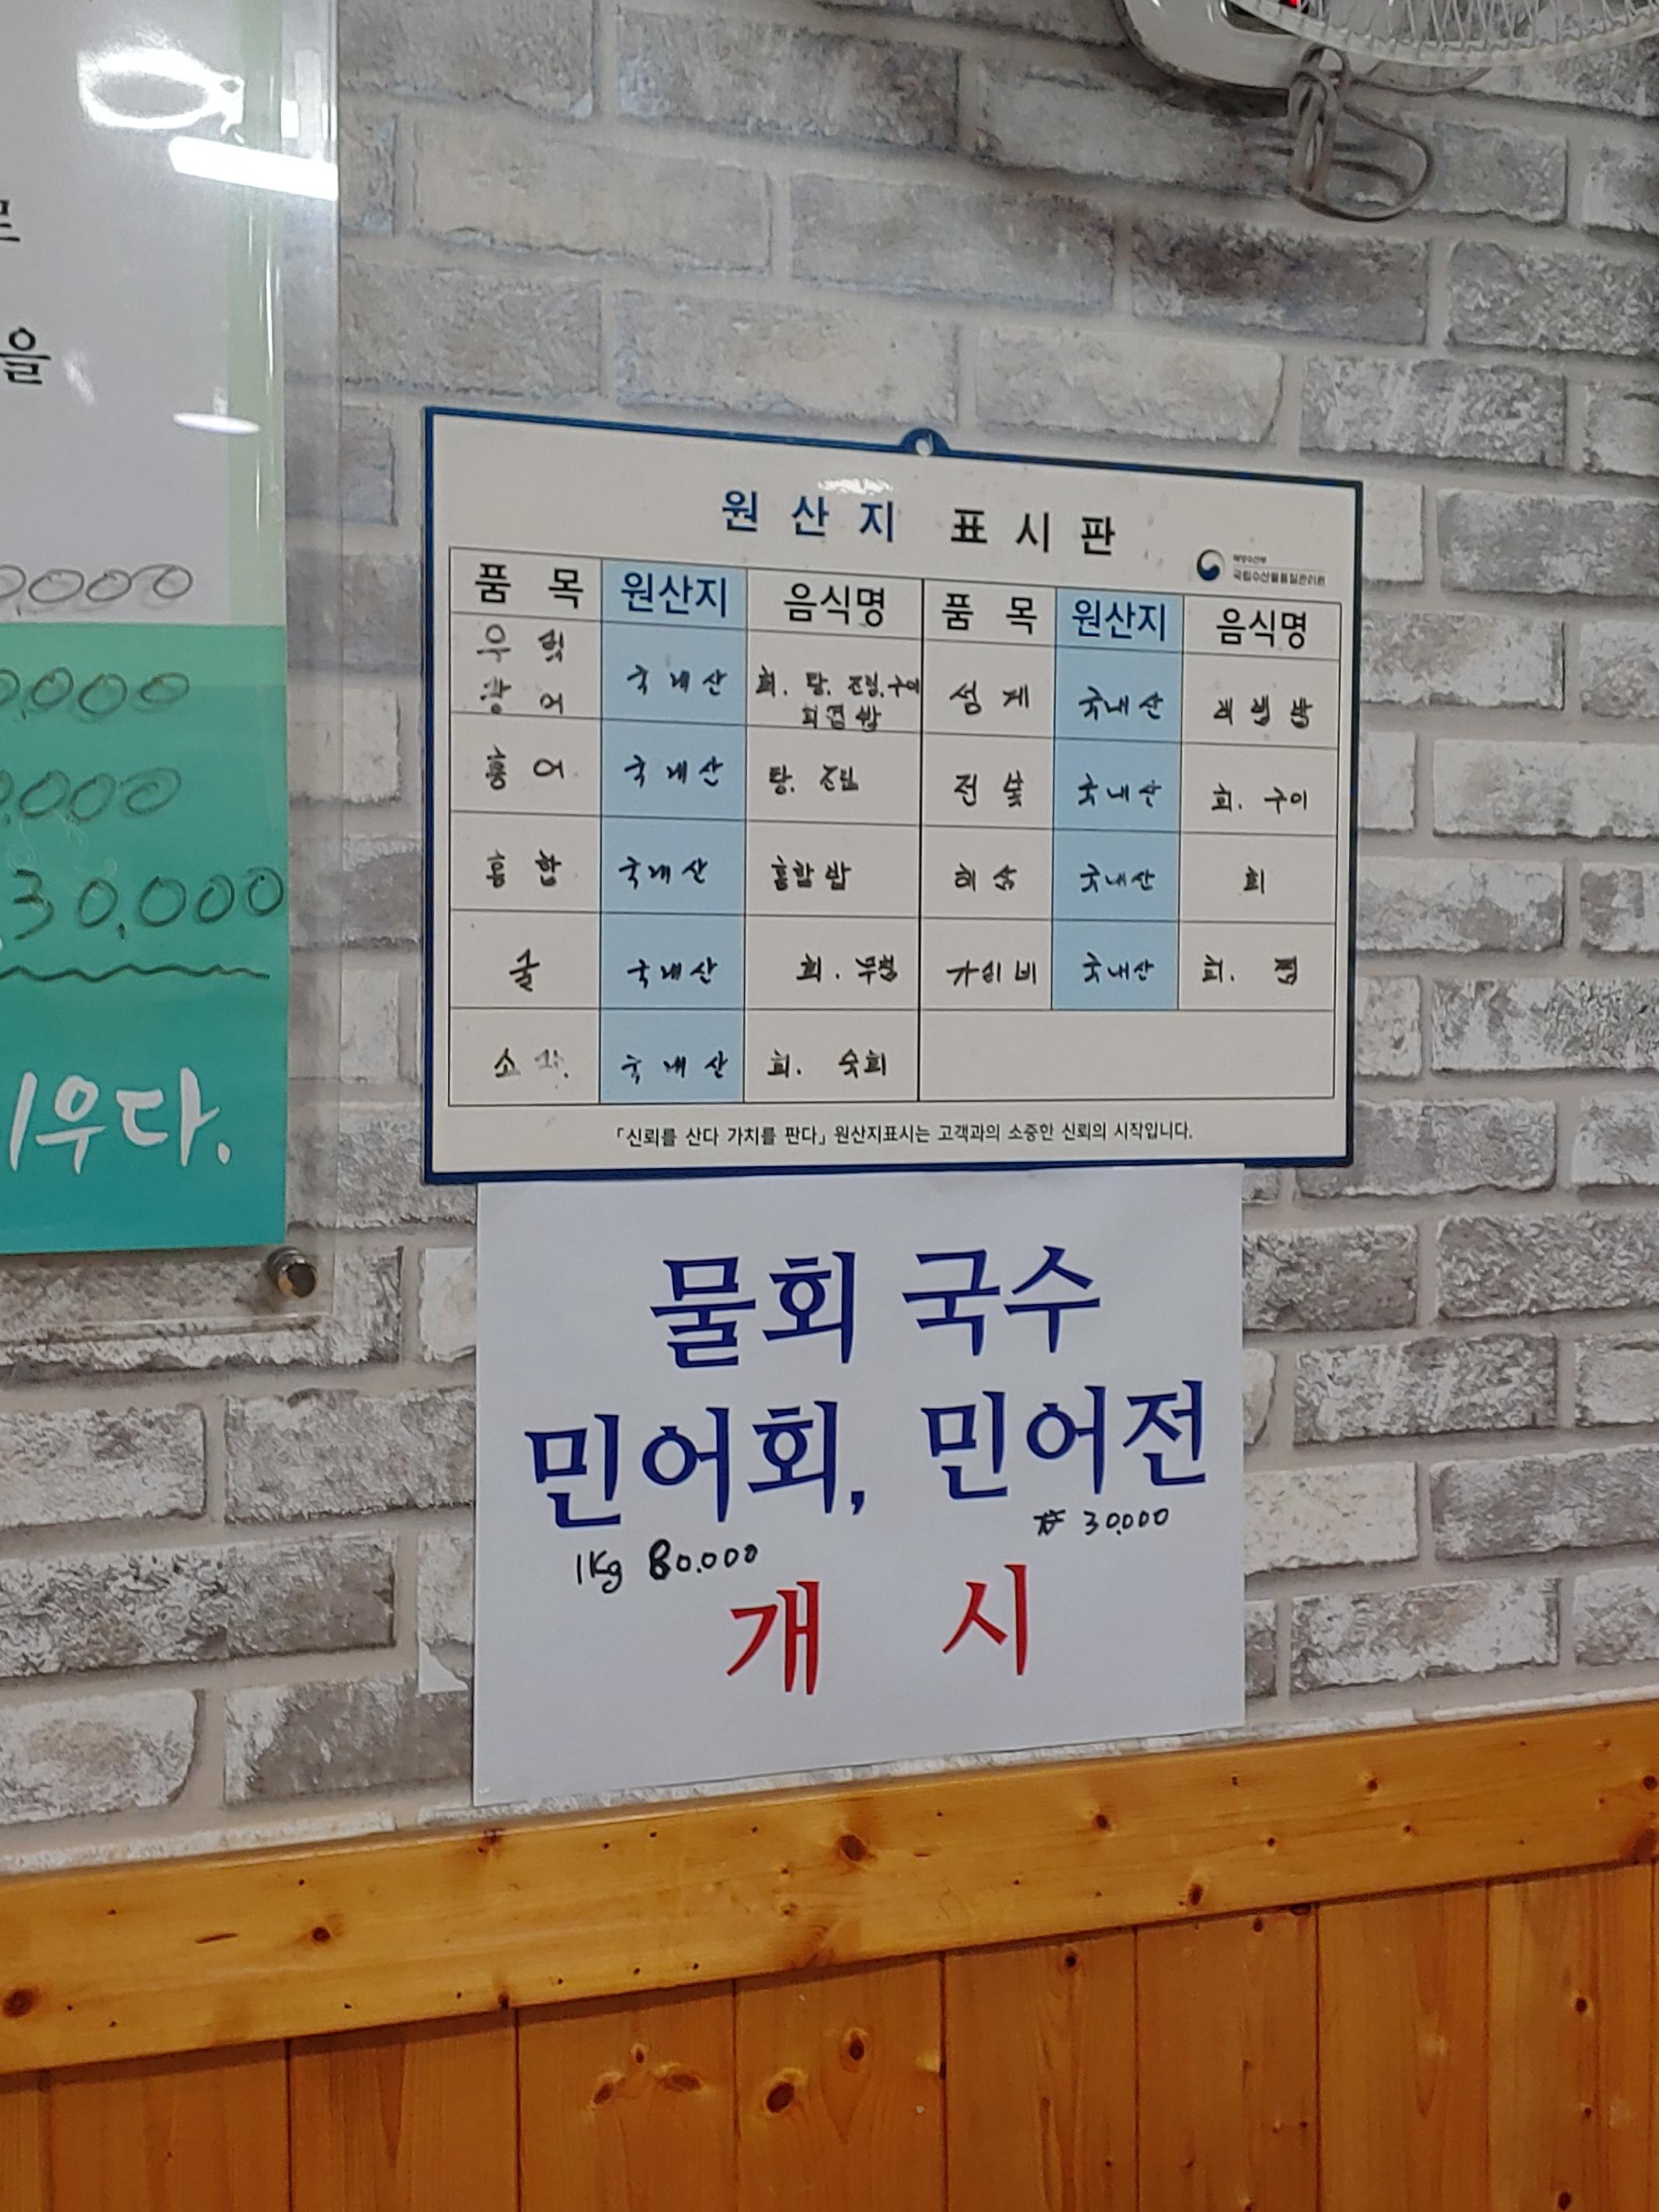 을
0,000
0,000
0,000
30,000
우다.
원산지 표시판
해양수산부
국립수산물품질관리원
품 목 원산지 음식명 품 목 원산지 음식명
우럭 광어 국내산 회. 탕. 조림. 구이 회덮밥 성게 국내산 비빔밥
홍어 국내산 탕. 조림 전복 국내산 회. 구이
홍합 국내산 홍합밥 해삼 국내산 회
굴 국내산 회. 무침 가리비 국내산 회. 찜
소라 국내산 회. 숙회
「신뢰를 산다 가치를 판다」 원산지표시는 고객과의 소중한 신뢰의 시작입니다.
물회 국수
민어회, 민어전
1Kg 80.000 30.000
개 시